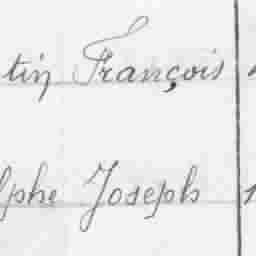 tin François
lphe Joseph